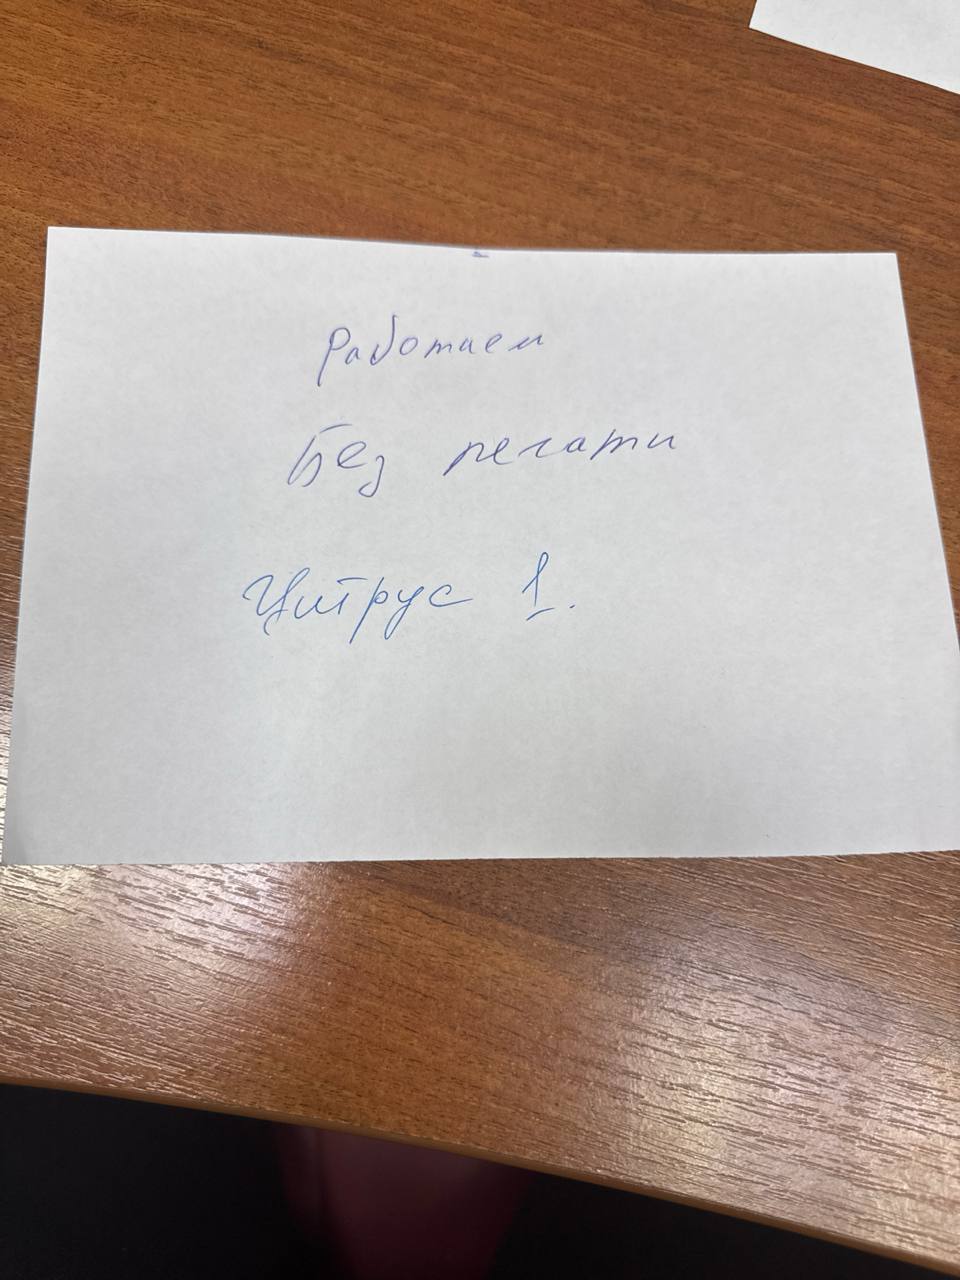 Работаем
Без печати
Цитрус 1.